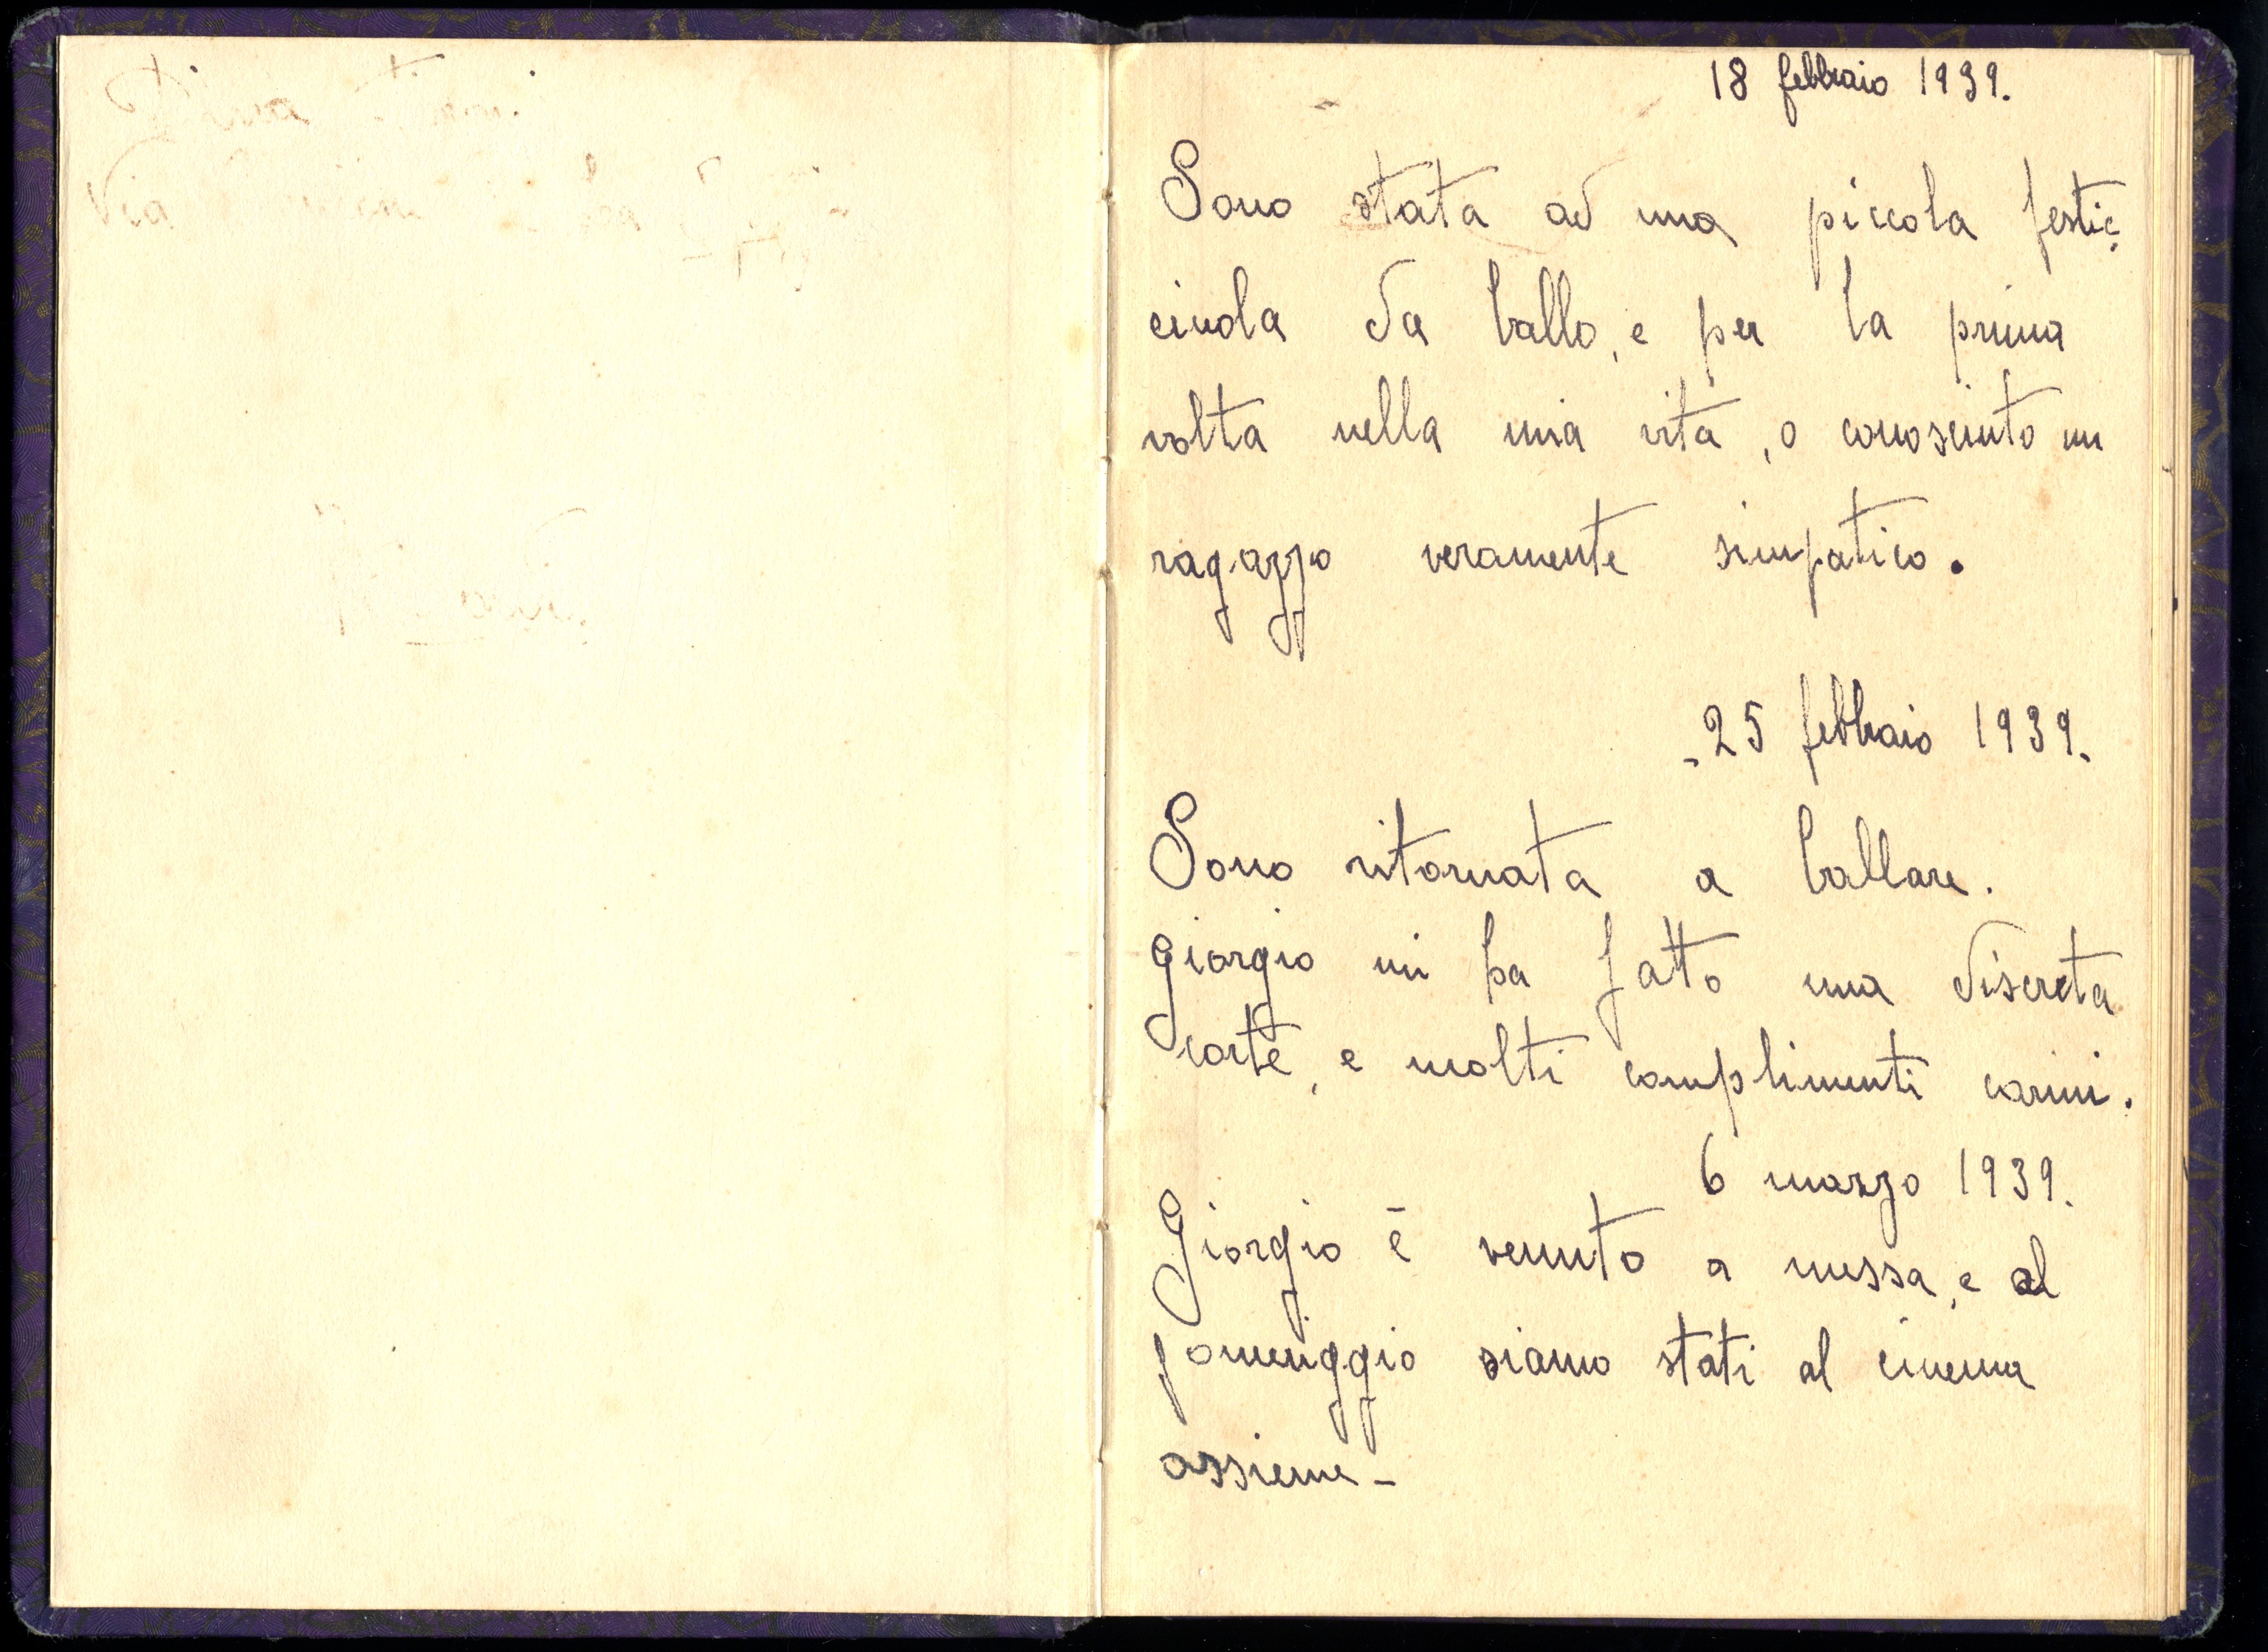 Via
18 febbraio 1939.
Sono stata ad una piccola festic-
ciuola da ballo, e per la prima
volta nella mia vita, o conosciuto un
ragazzo veramente simpatico.
- 25 febbraio 1939.
Sono ritornata a ballare.
giorgio mi ha fatto una discreta
corte, e molti complimenti carini.
6 marzo 1939.
Giorgio è venuto a messa, e al
pomeriggio siamo stati al cinema
assieme -